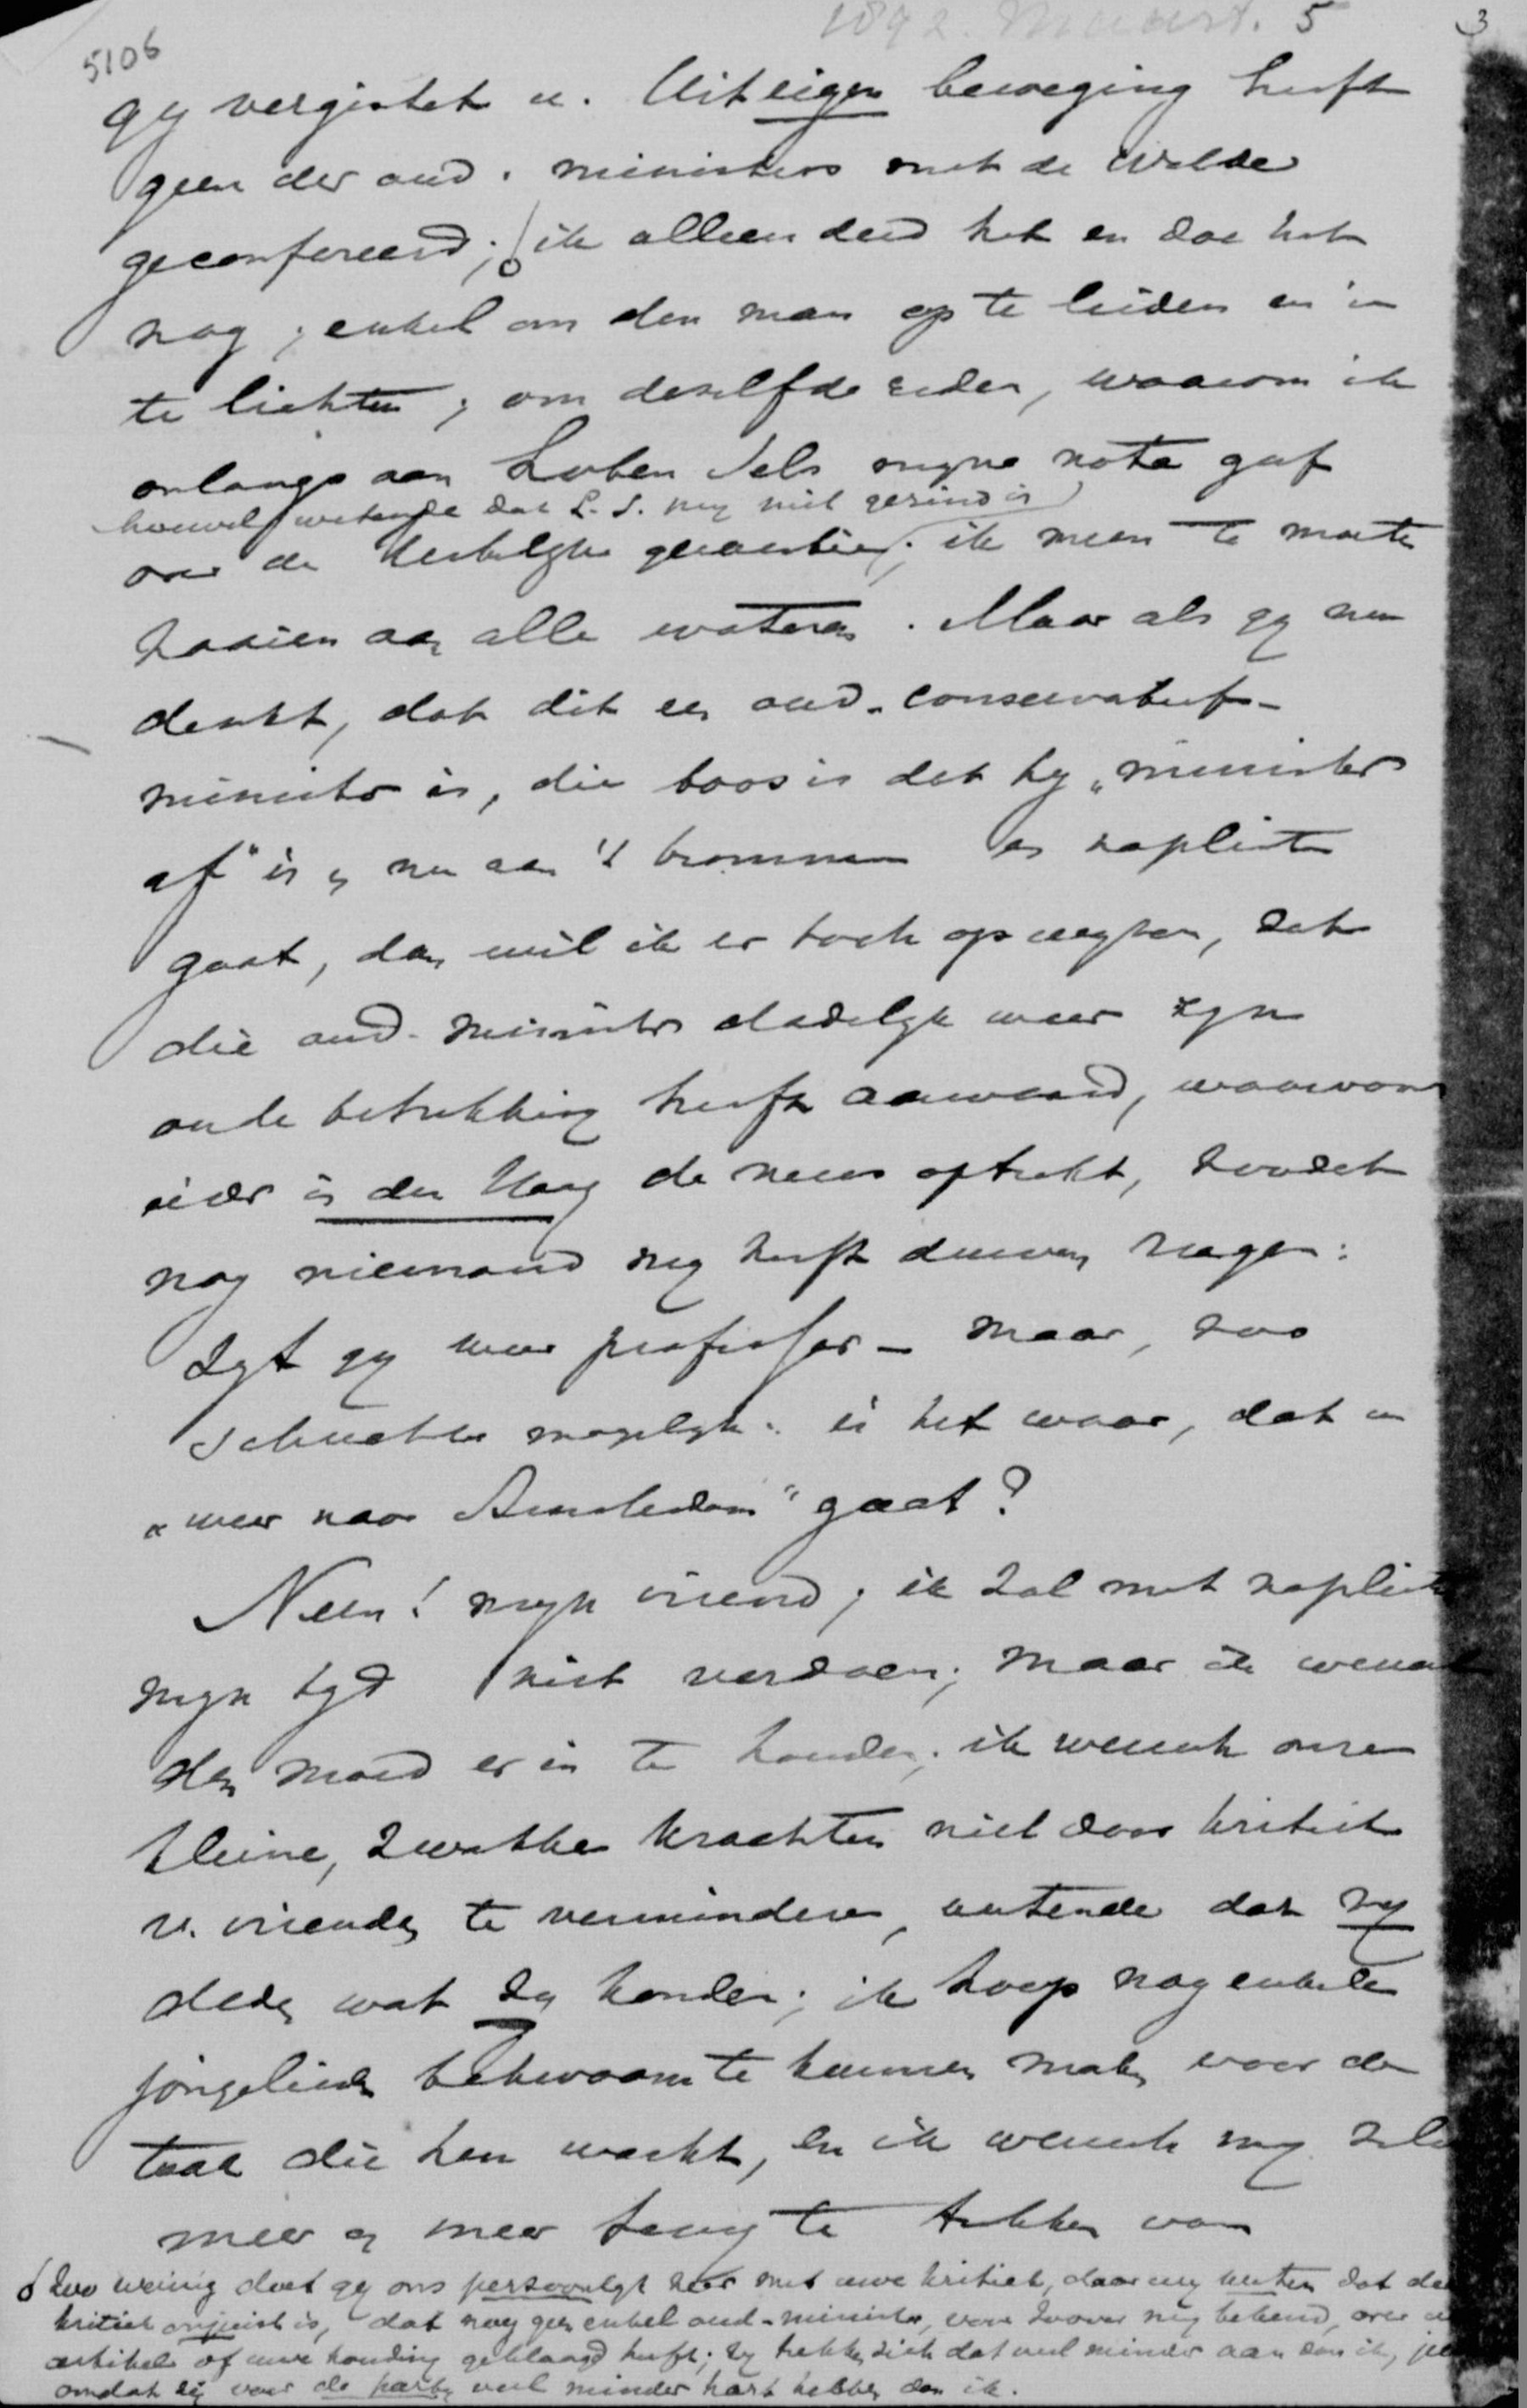 1892. Maart. 5
3
5106
gy vergistet u. Uit eigen beweging heeft
geen der oud. ministers met de Wilde
geconfereerd; ik alleen deed het en doe het
nog; enkel om den man op te leiden en in
te lichten; om dezelfde reden, waarom ik
onlangs aan Loben Sels myne nota gaf
hoewel wetende dat L. S. my niet gezind is
over de Kerkelyke quaestie; ik meen te moeten
zaaien aan alle wateren. Maar als gy nu
denkt, dat dit een oud-conservatief-
minister is, die boos is dat hy „minister
af" is en nu aan 't brommen en napleiten
gaat, dan wil ik er toch op wyzen, dat
die oud-minister dadelyk weer zyn
oude betrekking heeft aanvaard, waarvoor
ieder in den Haag de neus optrekt, zoodat
nog niemand my heeft durven vragen:
Zyt gy weer professor - maar, zoo
schuchter mogelyk: is het waar, dat u
„weer naar Amsterdam" gaat?
Neen! myn vriend; ik zal met napleiten
myn tyd niet verdoen; maar ik wensch
den moed er in te houden; ik wensch onze
kleine, zwakke krachten niet door kritiek
v. vrienden te verminderen, wetende dat zy
deden wat zy konden; ik hoop nog enkele
jongelieden bekwaam te kunnen maken voor de
taak die hen wacht, en ik wensch my zelf
meer en meer terug te trekken van
Zoo weinig doet gy ons persoonlyk zeer met uwe kritiek, daar wy weten dat de
kritiek onjuist is, dat nog geen enkel oud-minister, voor zoover my bekend, over uw
artikels of uwe houding geklaagd heeft; zy trekken zich dat veel minder aan dan ik,
omdat zy voor de party veel minder hart hebben dan ik.